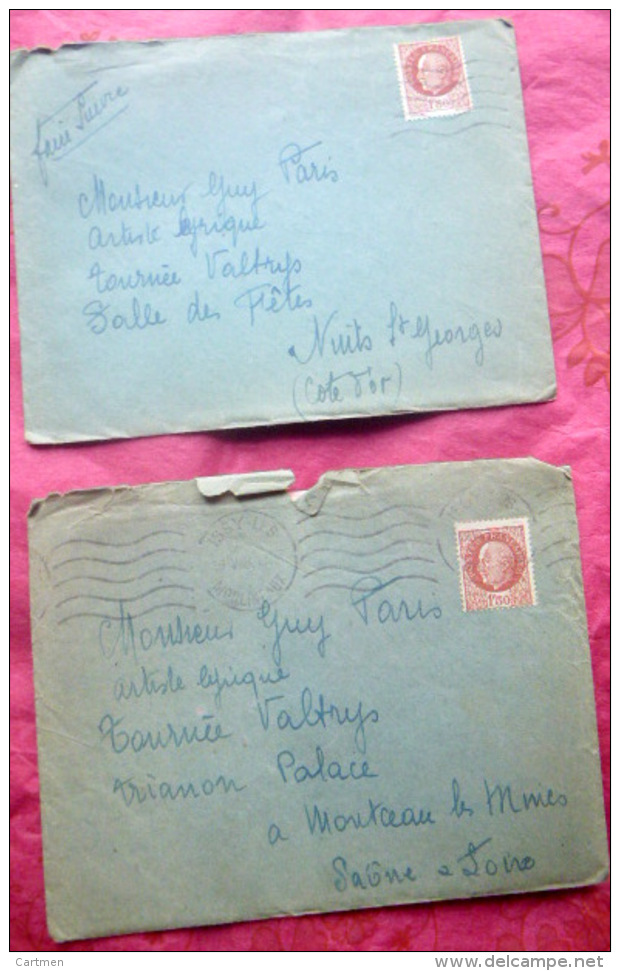 faire suivre
Monsieur Guy Paris
artiste lyrique
tournée Valtrys
Salle des Fêtes
Nuits St Georges
(Cote d'or)
1F50
ISSY-LES
Monsieur Guy Paris
artiste lyrique
Tournée Valtrys
trianon Palace
a Montceau les Mines
Saône & Loire
1F50
Cartmen
www.delcampe.net